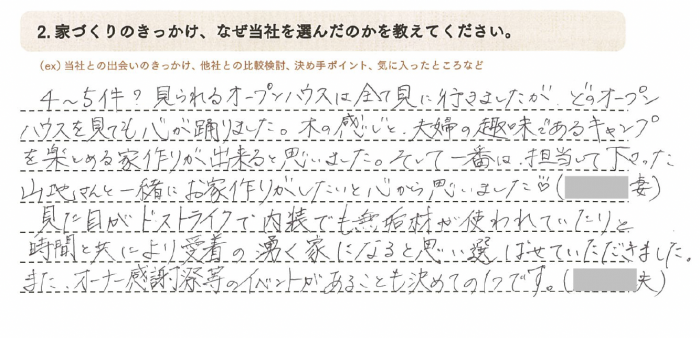 2. 家づくりのきっかけ、なぜ当社を選んだのかを教えてください。
(ex) 当社との出会いのきっかけ、他社との比較検討、決め手ポイント、気に入ったところなど
4～5件？見られるオープンハウスは全て見に行きましたが、どのオープン
ハウスを見ても心が踊りました。木の感じと、夫婦の趣味であるキャンプ
を楽しめる家作りが出来ると思いました。そして一番は、担当して下さった
山地さんと一緒にお家作りがしたいと心から思いました♡(妻)
見た目がドストライクで内装でも無垢材が使われていたりと
時間と共により愛着の湧く家になると思い選ばせていただきました。
また、オーナー感謝祭等のイベントがあることも決めての1つです。(夫)